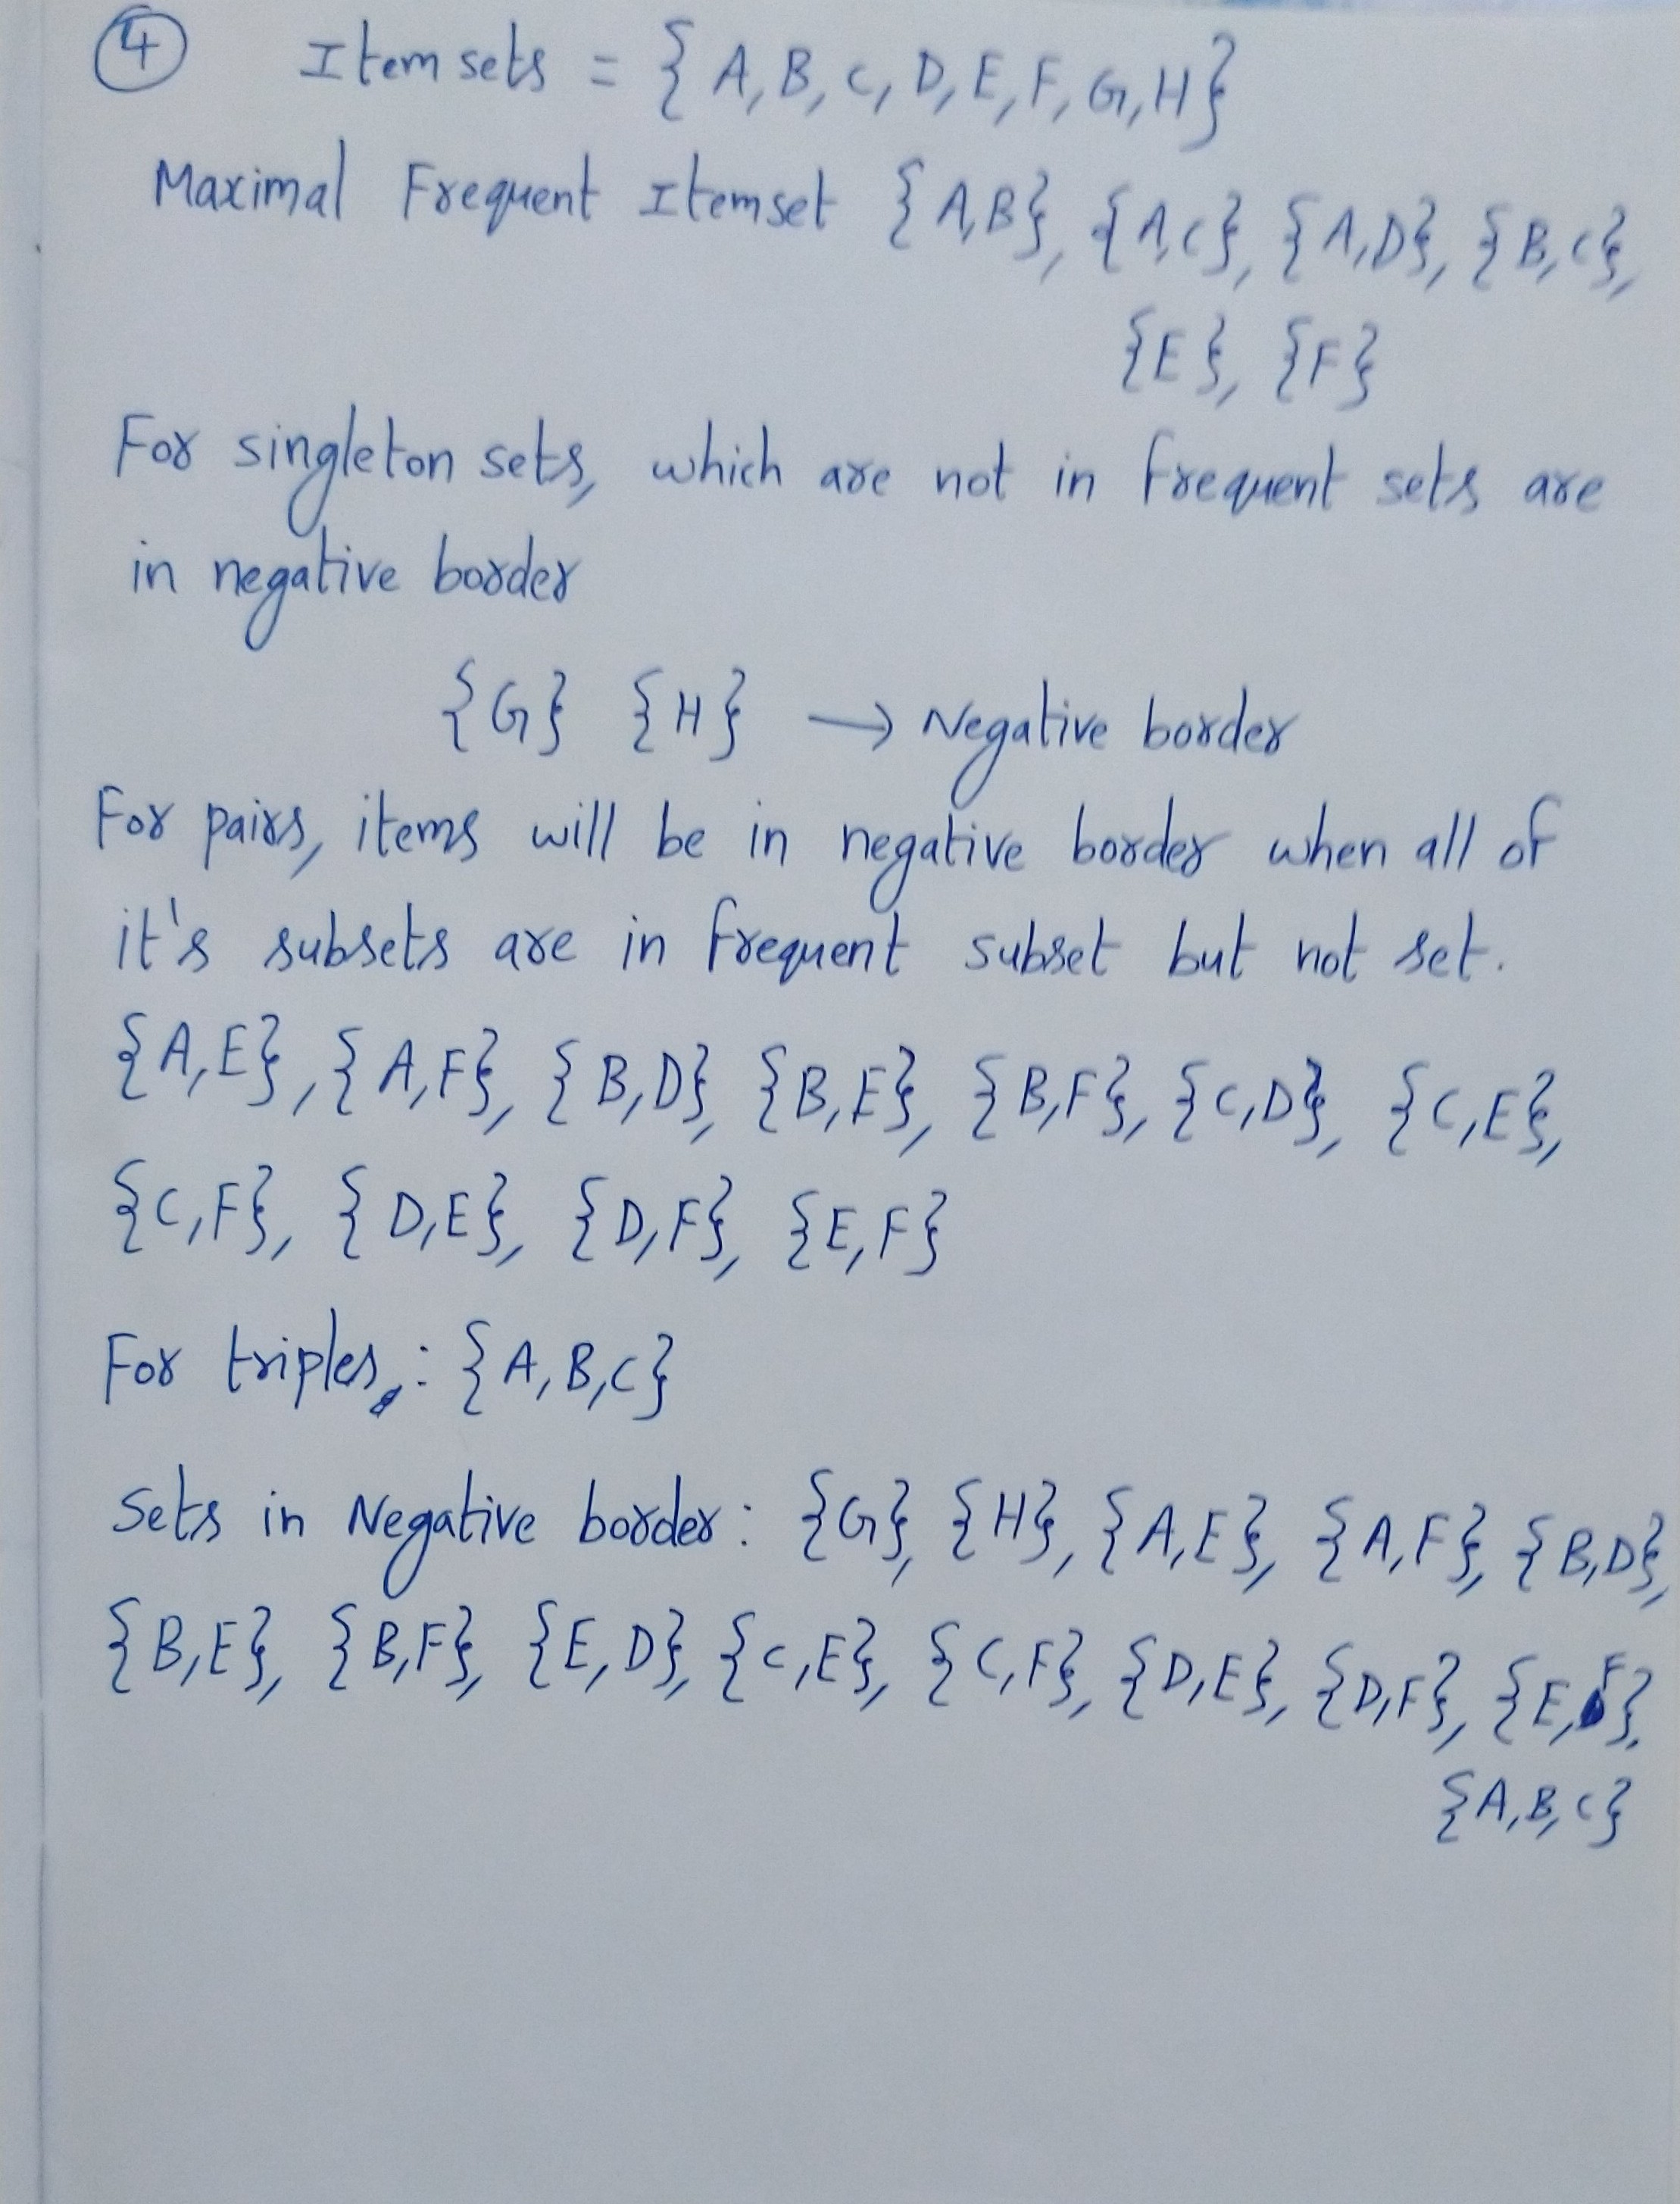 4 Item sets = { A, B, C, D, E, F, G, H}
Maximal Frequent Itemset {A,B}, {A,C}, {A,D}, {B,C},
{E}, {F}
For singleton sets, which are not in frequent sets are
in negative border
{G} {H} → Negative border
For pairs, items will be in negative border when all of
it's subsets are in frequent subset but not set.
{A,E}, {A,F}, {B,D}, {B,E}, {B,F}, {C,D}, {C,E},
{C,F}, {D,E}, {D,F}, {E,F}
For triples,: {A,B,C}
Sets in Negative border: {G}, {H}, {A,E}, {A,F}, {B,D},
{B,E}, {B,F}, {E,D}, {C,E}, {C,F}, {D,E}, {D,F}, {E,F},
{A,B,C}